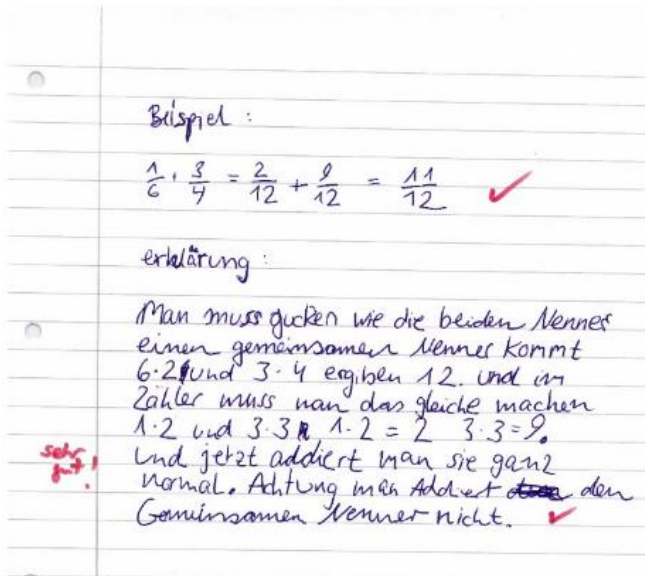 Beispiel :
1/6 + 3/4 = 2/12 + 9/12 = 11/12 ✓
erklärung :
Man muss gucken wie die beiden Nenner
einen gemeinsamen Nenner kommt
6·2 und 3·4 ergiben 12. und im
Zähler muss man das gleiche machen
1·2 und 3·3 1·2 = 2 3·3=9.
sehr gut! Und jetzt addiert man sie ganz
normal. Achtung man Addiert den
Gemeinsamen Nenner nicht. ✓